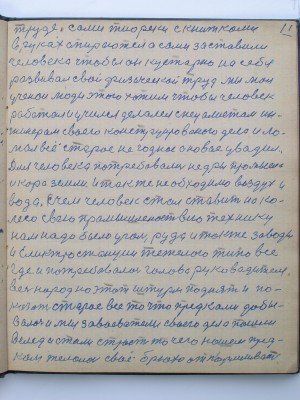 11
труде, сами творски с книжками
в руках стираются а сами заставили
человека чтобы он кустарно на себя
развивал свой физический труд мы мои
учёном людя этого хотим чтобы человек
работал и учился делался специалистом ин-
женерам своего конструкровского дела и ло-
мал всё старое не годное а новое увадил.
Для человека потребовали недры
и кора земли и также необходимо воздух и
вода, с чем человек стал ставить на ко-
лесо свою промышленность всю технику
нам надо было уголь, руда и также заводы
и електростанции тяжелого типа все
где и потребовалось голова руководителя.
Вся народ на этот штурм поднят и по-
старое все то что предками добы-
валося мы завоеватели своего дела пошли
вслед и стали строят то чего нашем пред-
кам только своё брюхо откармливат